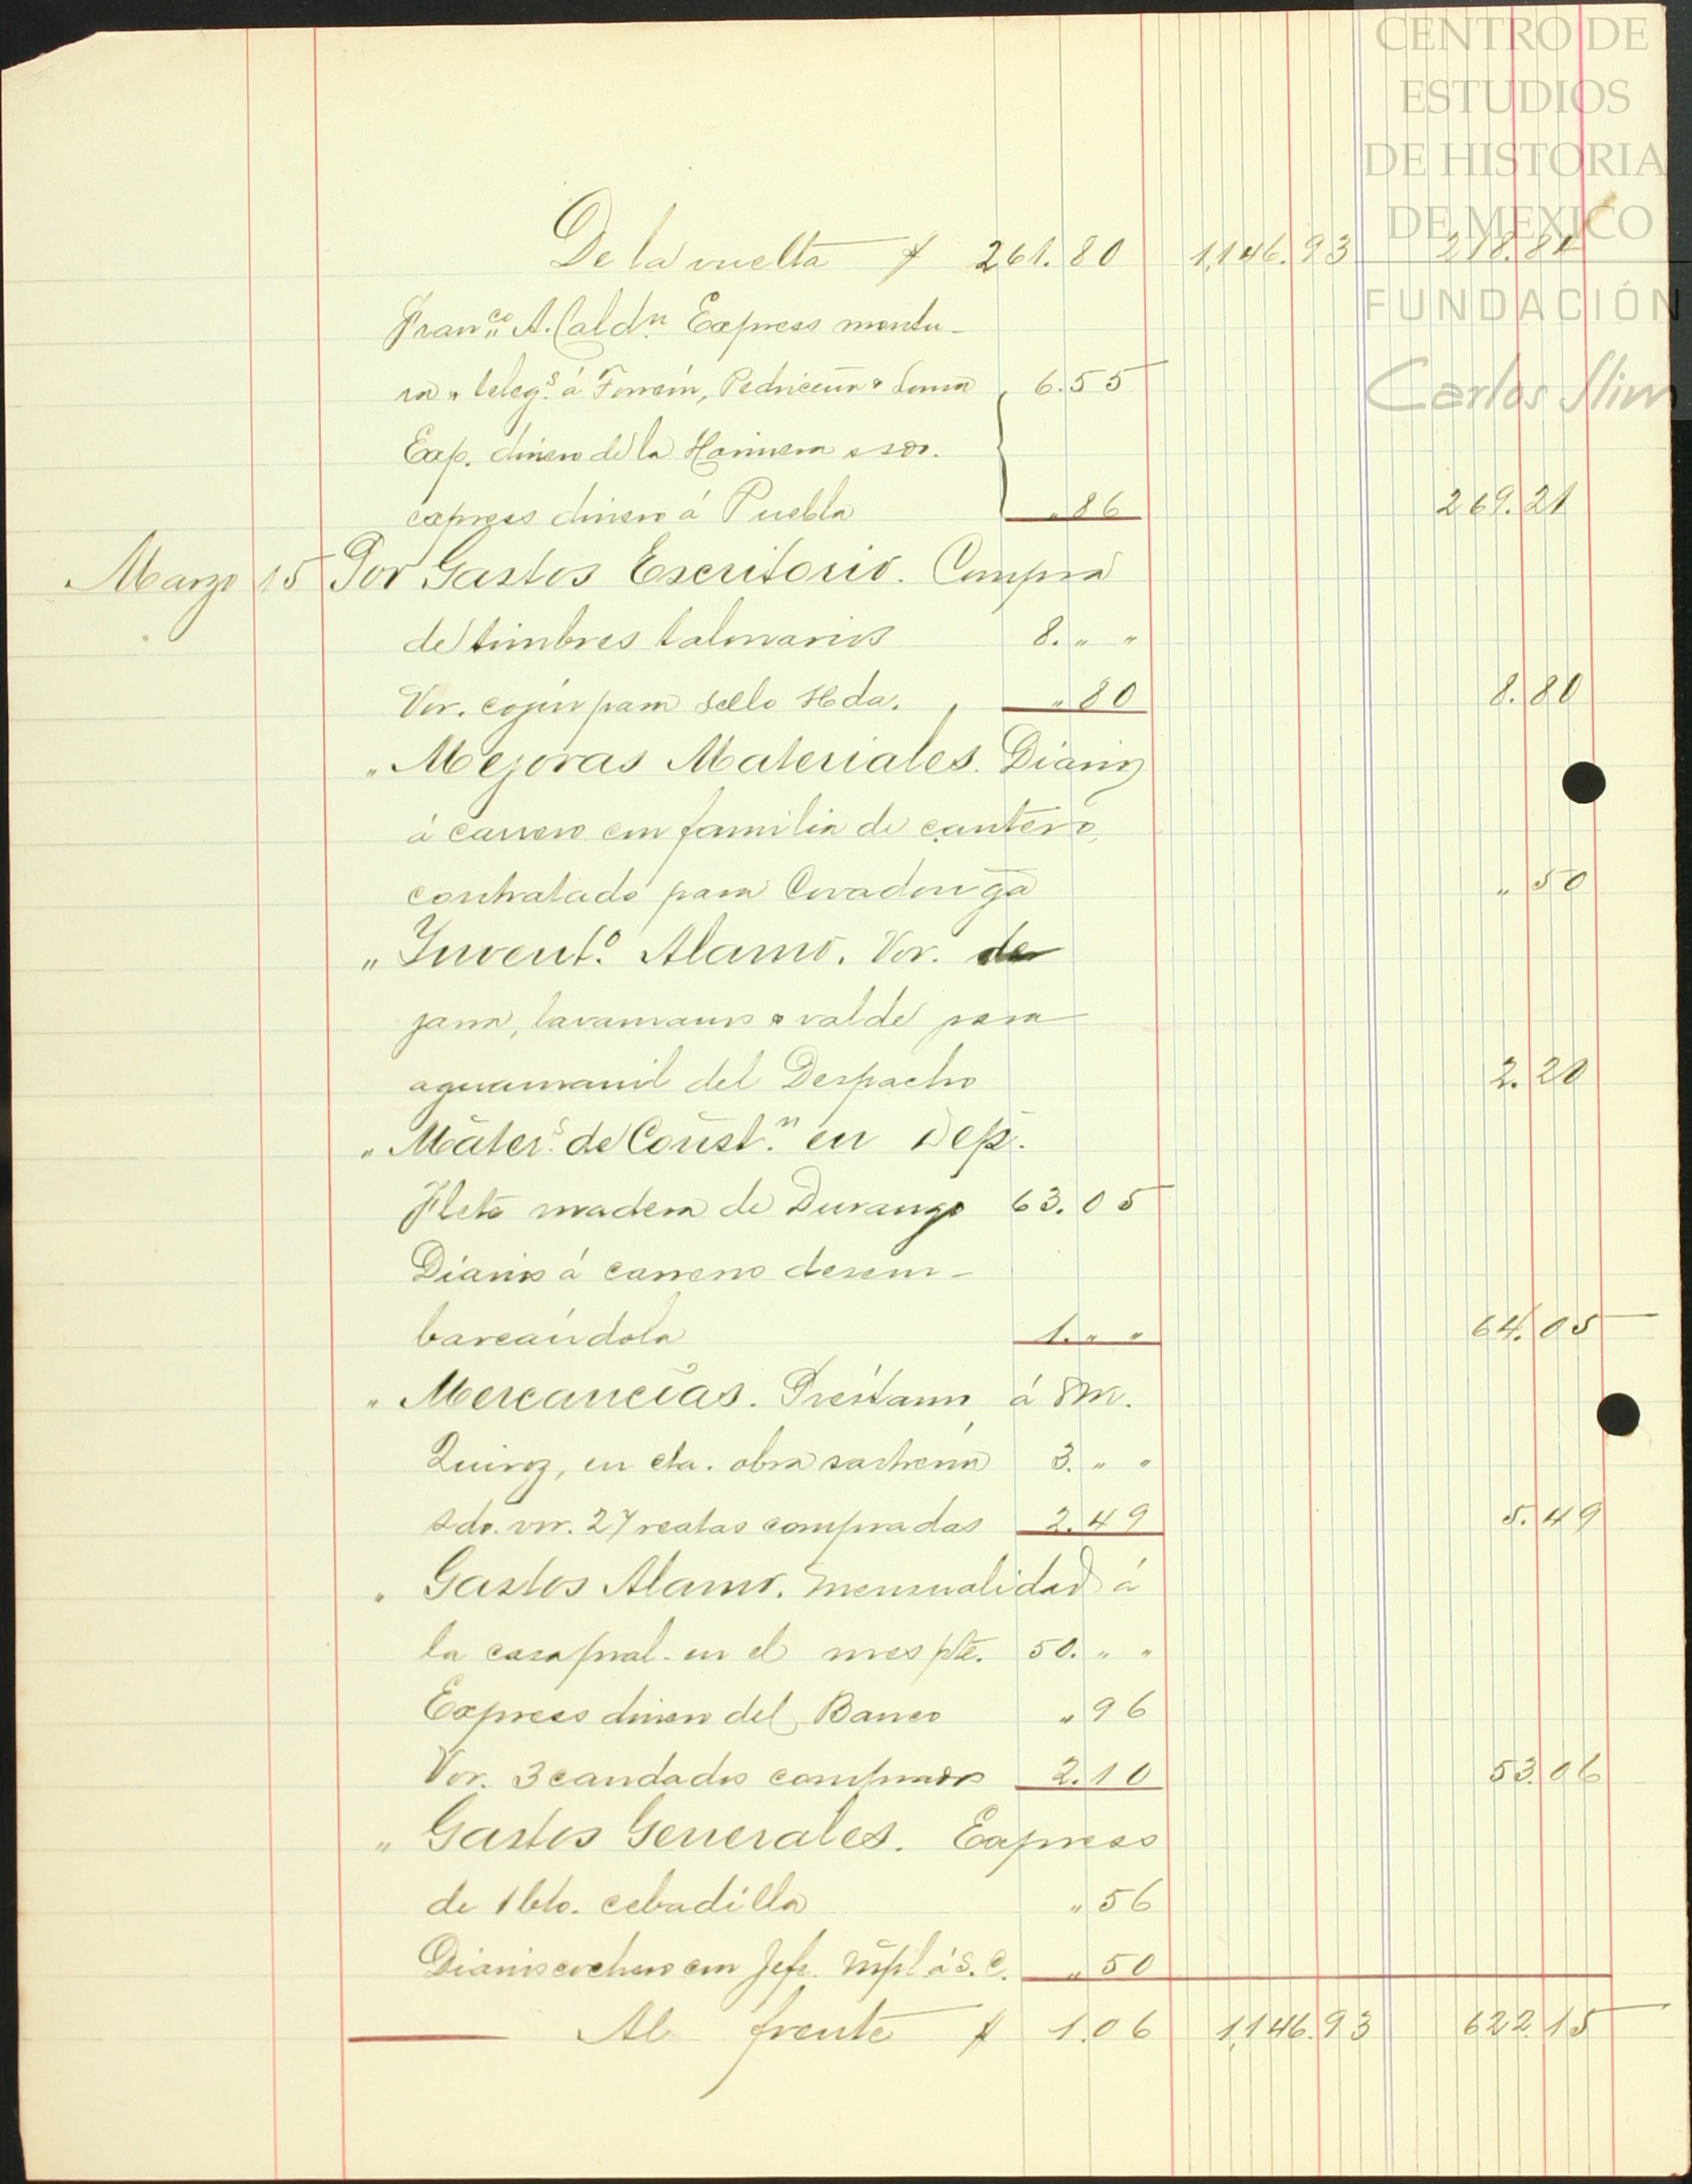 CENTRO DE
ESTUDIOS
DE HISTORIA
DE MEXICO
FUNDACIÓN
Carlos Slim
De la vuelta $ 261.80 1,146.93 218.84
Franco. A. Caldn. Express montu-
ra " telegs. á Torreón, Pedriceña & Loma , 6.55
Exp. dinero de la Harinera
express dinero á Puebla " 86 269.21
Marzo 15 Por Gastos Escritorio. Compra
de timbres talonarios 8. " "
Vor. cojín para sello Hda. , " 80 8.80
" Mejoras Materiales. Diario
á carrero con familia de cantero,
contratado para Covadonga " 50
" Invento. Alamo. Vor. de
jarra, lavamanos & valde para
aguamanil del Despacho 2.20
" Maters. de Constn. en Dep.
Flete madera de Durango 63.05
Diarios á carreros desem-
barcándola 1. " " 64.05
" Mercancías. Préstamo á
Quiroz, en cta. obra sastrería 3. " "
sdo. vor. 27 reatas compradas 2.49 5.49
" Gastos Alamo. Mensualidad á
la casa pral. en el mes pte. 50. " "
Express dinero del Banco " 96
Vor. 3 candados comprados 2.10 53.06
" Gastos Generales. Express
de 1 bto. cebadilla " 56
Diarios cochero con Jefe. á S. C. " 50
Al frente $ 1.06 1,146.93 622.15